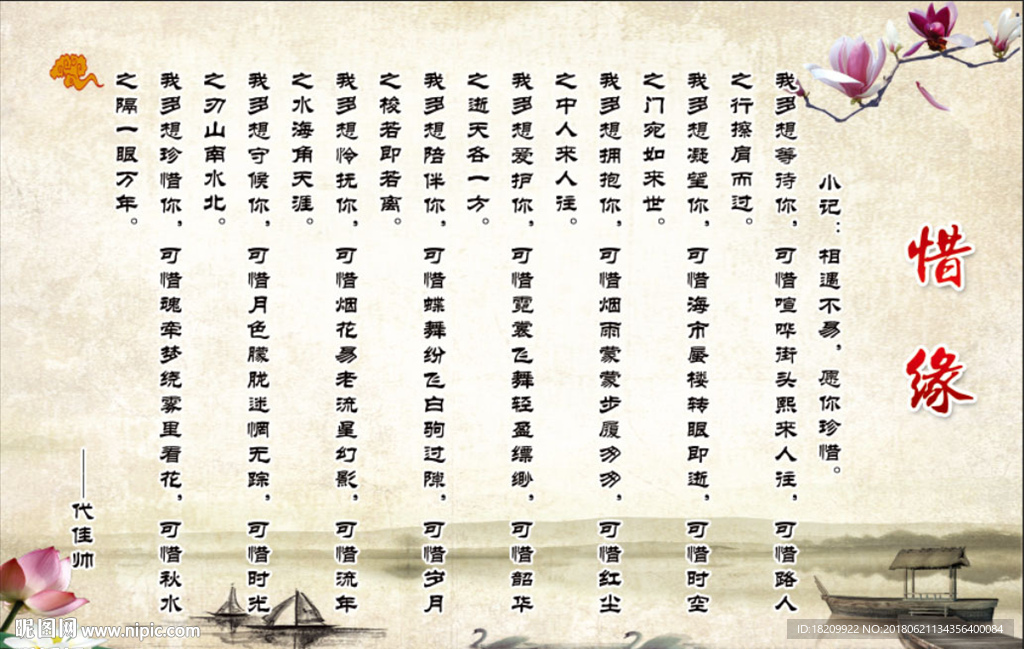 惜缘
小记：相遇不易，愿你珍惜。
我多想等待你，可惜喧哗街头熙来人往，可惜路人
之行擦肩而过。
我多想凝望你，可惜海市蜃楼转眼即逝，可惜时空
之门宛如来世。
我多想拥抱你，可惜烟雨蒙蒙步履匆匆，可惜红尘
之中人来人往。
我多想爱护你，可惜霓裳飞舞轻盈缥缈，可惜韶华
之逝天各一方。
我多想陪伴你，可惜蝶舞纷飞白驹过隙，可惜岁月
之梭若即若离。
我多想怜抚你，可惜烟花易老流星幻影，可惜流年
之水海角天涯。
我多想守候你，可惜月色朦胧迷惘无踪，可惜时光
之刃山南水北。
我多想珍惜你，可惜魂牵梦绕雾里看花，可惜秋水
之隔一眼万年。
——代佳帅
昵图网 www.nipic.com
ID:18209922 NO:20180621134356400084